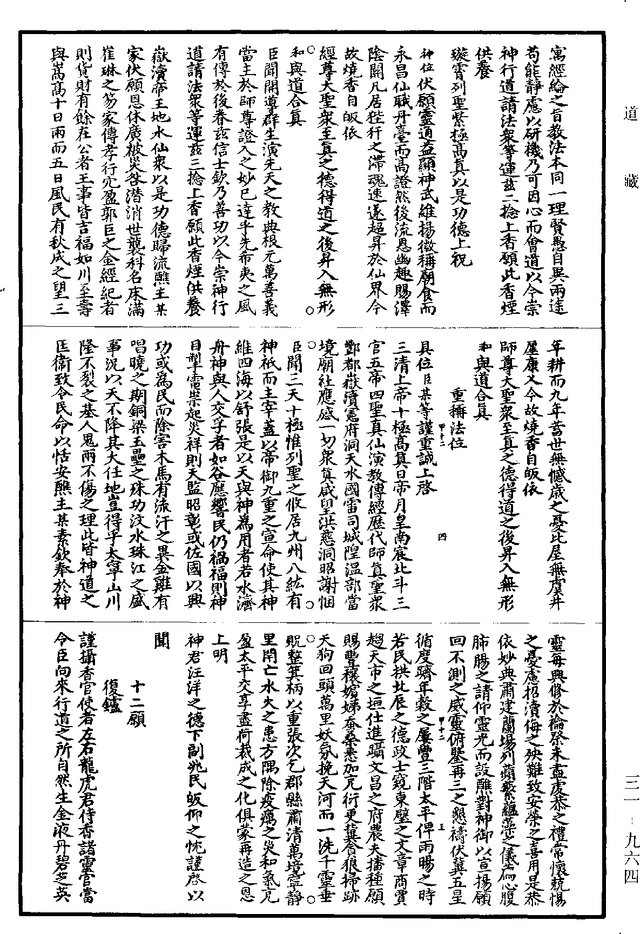 道藏
寓經綸之旨教法本同一理賢愚自異兩途
苟能靜慮以研機乃可因心而會道以今崇
神行道請法衆等運茲二捻上香願此香煙
供養
璇霄列聖紫極高真以是功德上祝
神位伏願靈通益顯神武維揚徽稱廟食而
永昌仙職丹臺而高證然後流恩幽趣賜澤
陰關凡居徃行之滯魂速遂超昇於仙界今
故燒香自皈依
經尊大聖衆至真之德得道之後昇入無形
和與道合真
臣聞開導群生演先天之教典根元萬善義
當主於師尊證入之妙已達乎先希夷之風
有傳於後春茲信士欽乃善功以今崇神行
道請法衆等運茲三捻上香願此香煙供養
嶽瀆帝王地水仙衆以是功德歸流醮主某
家伏願恩休廣被災咎潛消世襲科名床滿
崔琳之笏家傳孝行穴盈郭巨之金經紀者
則貨財有餘在公者王事皆吉福如川至壽
與嵩高十日雨而五日風民有秋成之望三
年耕而九年蓄世無憾歲之憂比屋無虞幷
屋康乂今故燒香自皈依
師尊大聖衆至真之德得道之後昇入無形
和與道合真
重稱法位
具位臣某等謹重誠上啓
三清上帝十極高真日帝月皇南宸北斗三
官五帝四聖真仙演教傳經歷代師真聖衆
酆都嶽瀆憲府洞天水國雷司城隍溫部當
境廟社應感一切衆真咸望洪慈洞昭謝悃
臣聞三天十極惟列聖之攸居九州八紘有
神祇而主宰蓋以帝御九重之宣命使其神
維四海以舒張是以天與神為用者若水濟
舟神與人交孚者如谷應響民仍禍福則神
目掣雷電崇起災祥則天監昭彰或佐國以興
功或為民而除害木馬有流汗之異金雞有
唱曉之期銅梁玉壘之珠功汶水珠江之盛
事況以天不降其大任地豈得乎太寧山川
隆不裂之基人鬼兩不傷之理此皆神道之
匡衛致令民命以恬安醮主某素欽奉於神
甲十二
四
靈每興修於禴祭未盡虔恭之禮常懷兢惕
之憂慮招瀆侮之殃難致安榮之喜用是恭
依妙典肅建蘭場列蘋蘩蘊藻之儀備心腹
肺腸之請仰靈光而設醮對神御以宣揚願
回不測之威靈俯鑒再三之懇禱伏冀五星
循度躋年穀之屢豐三階太平俾雨暘之時
若民拱北辰之德政士窺東壁之文章商賈
趨天市之垣仕進躡文昌之府農夫播種願
賜曹穰嬪婦蚕桑悉加充衍更冀奔狼掃跡
天狗回頭萬里妖氛挽天河而一洗千靈垂
貺整箕柄以重張次乞郡縣肅清萬境寧靜
里閈亡水火之患方隅除疫癘之災和氣充
盈太平交享盡荷裁成之化俱蒙再造之恩
上明
神君汪洋之德下副兆民皈仰之忱謹啓以
聞
十二願
復鑪
謹攝香官使者左右龍虎君侍香諸靈官當
令臣向來行道之所自然生金液丹碧芝英
甲十二
五
三一-九六四